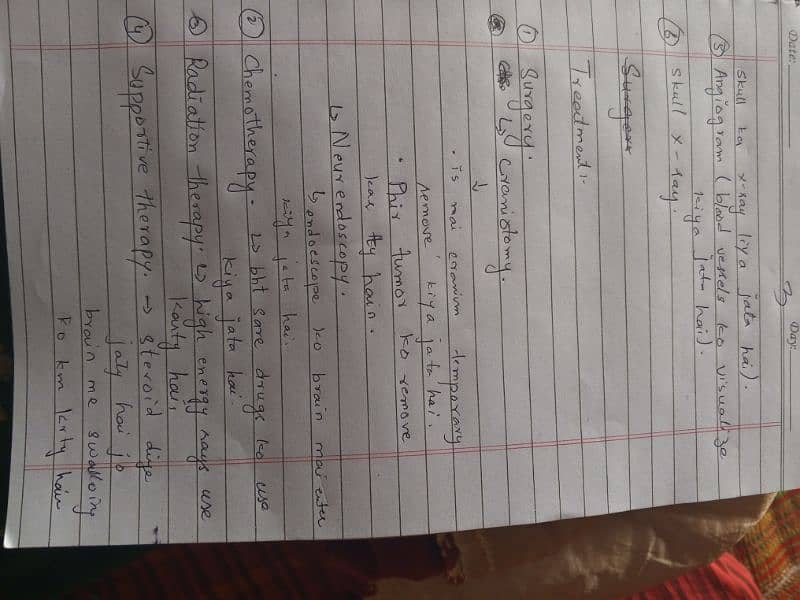 Date:
3
Day:
Skull ka x-ray liya jata hai).
⑤ Angiogram (blood vessels ko visualize
kiya jata hai).
⑥ Skull x-ray.
Surgery
Treatment:-
① Surgery.
↳ Craniotomy.
↓
• is mai cranium temporary
remove kiya jata hai.
• Phir tumor ko remove
kar ty hain.
↳ Neuroendoscopy.
↳ endoescope ko brain mai enter
kiya jata hai.
② Chemotherapy. ↳ bht sare drugs ko use
kiya jata hai.
③ Radiation therapy. ↳ high energy rays use
karty hai.
④ Supportive therapy. → steroid diye
jaty hai jo
brain me swalloing
ko km krty hain